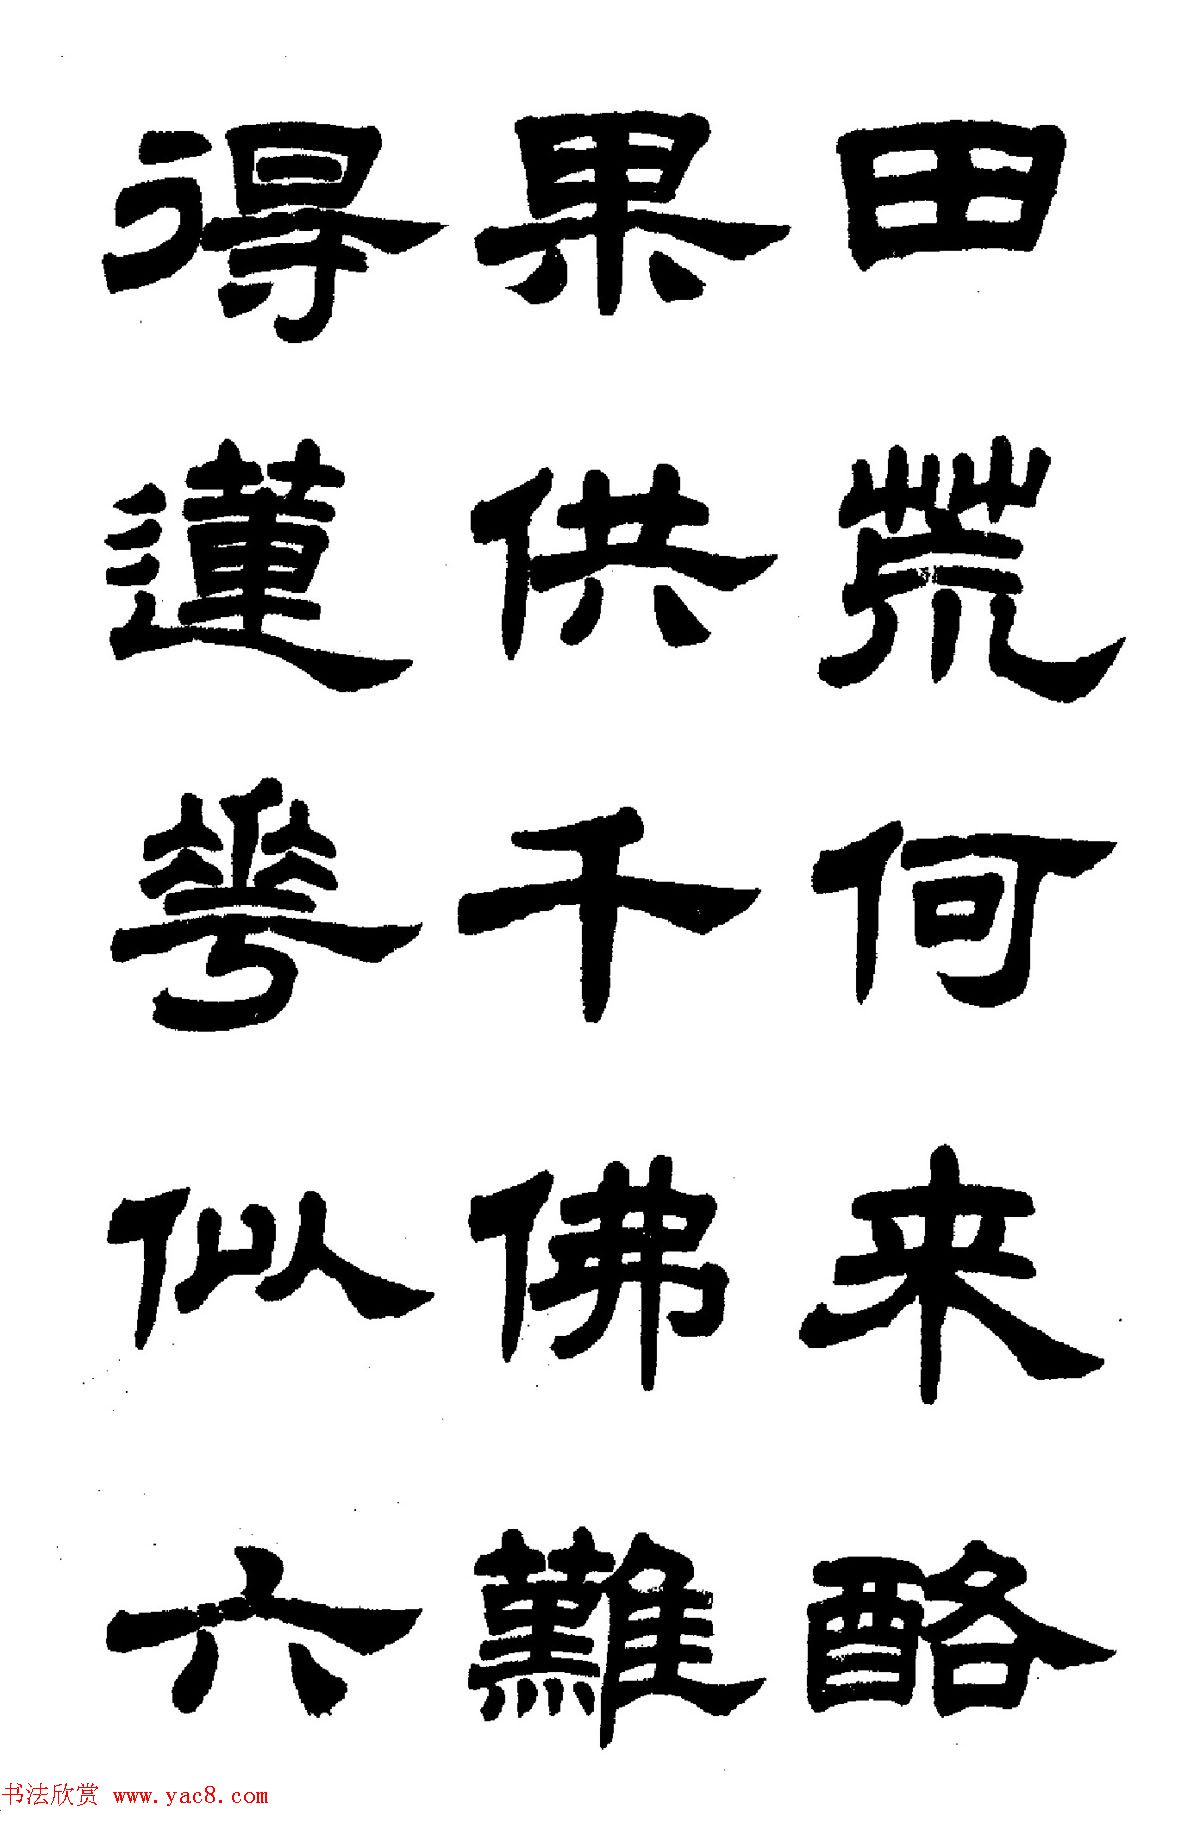 田荒何来酪
果供千佛難
得蓮華似六
书法欣赏 www.yac8.com